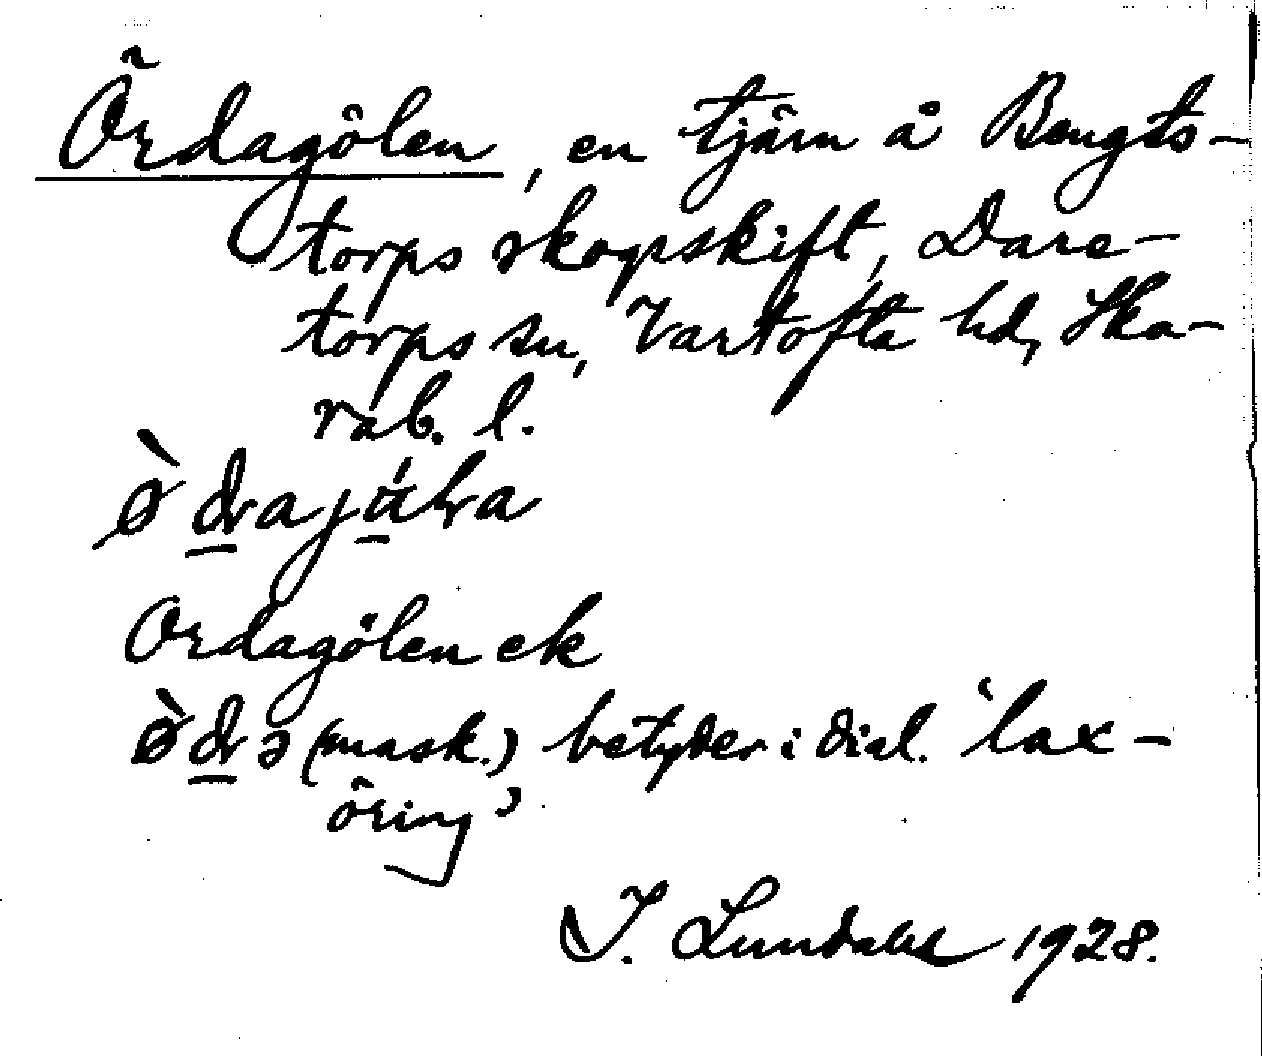 Ördagölen, en tjärn å Bengts-
torps skogsskift, Dare-
torps sn, Vartofta hd, Ska-
rab. l.
Ordagölen ek
(mask.) betyder i dial. 'lax-
öring'
I. Lundahl 1928.